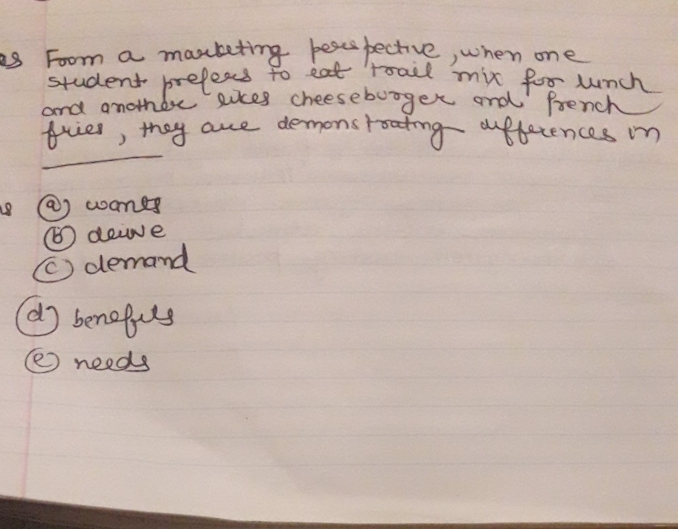 es From a marketing perspective, when one
student prefers to eat trail mix for lunch
and another likes cheeseburger and french
fries, they are demonstrating differences in
(a) wants
(b)
(c) demand
(d) benefits
(e) needs